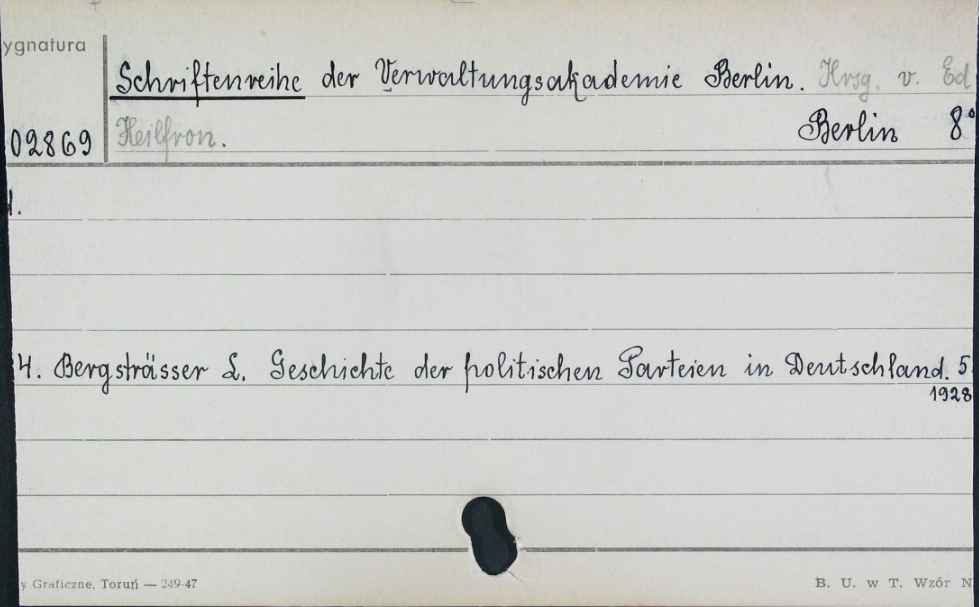 ygnatura
Schriftenreihe der Verwaltungsakademie Berlin. Hrsg. v. Ed
02869 Heilfron. Berlin 8°
4. Bergsträsser L. Geschichte der politischen Parteien in Deutschland. 5
1928
y Graficzne, Toruń — 249-47 B. U. w T. Wzór N